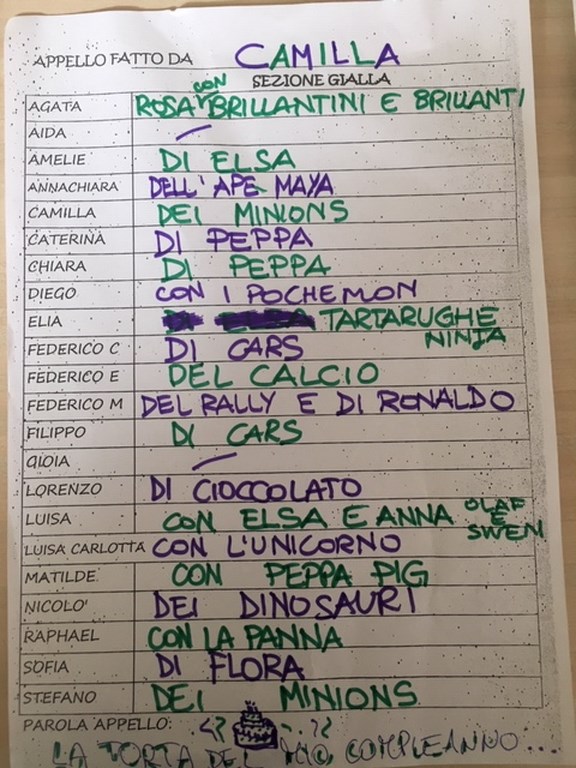 APPELLO FATTO DA CAMILLA
SEZIONE GIALLA
AGATA ROSA CON BRILLANTINI E BRILLANTI
AIDA —
AMELIE DI ELSA
ANNACHIARA DELL'APE MAYA
CAMILLA DEI MINIONS
CATERINA DI PEPPA
CHIARA DI PEPPA
DIEGO CON I POCHEMON
ELIA TARTARUGHE NINJA
FEDERICO C DI CARS
FEDERICO E DEL CALCIO
FEDERICO M DEL RALLY E DI RONALDO
FILIPPO DI CARS
GIOIA —
LORENZO DI CIOCCOLATO
LUISA CON ELSA E ANNA OLAF E SWEN
LUISA CARLOTTA CON L'UNICORNO
MATILDE CON PEPPA PIG
NICOLO' DEI DINOSAURI
RAPHAEL CON LA PANNA
SOFIA DI FLORA
STEFANO DEI MINIONS
PAROLA APPELLO:
LA TORTA DEL MIO COMPLEANNO...